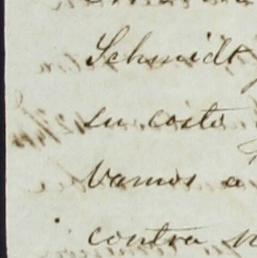 Schmidt
su costo
vamos a
contra